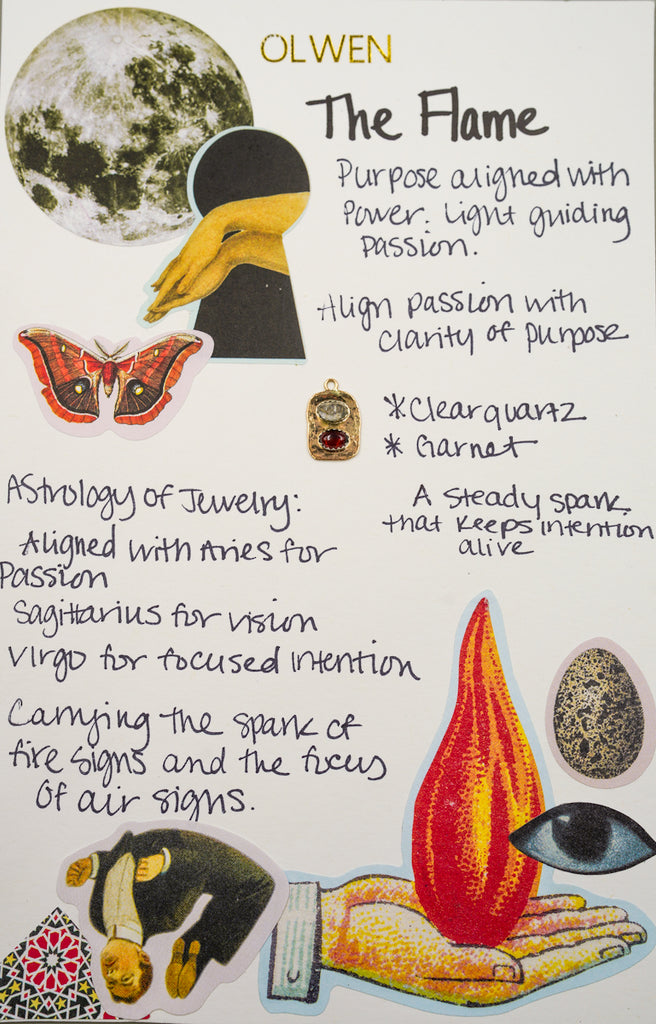 OLWEN
The Flame
Purpose aligned with
Power. Light guiding
passion.
Align passion with
clarity of purpose
*Clear quartz
* Garnet
A steady spark
that keeps intention
alive
Astrology of Jewelry:
Aligned with Aries for
Passion
Sagittarius for vision
Virgo for focused intention
Carrying the spark of
fire signs and the focus
of air signs.